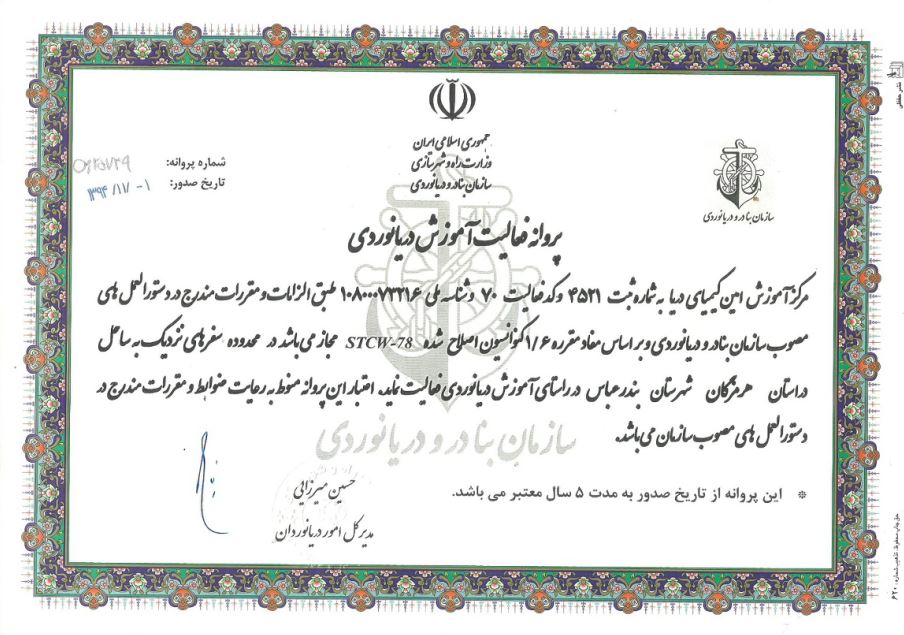 جمهوری اسلامی ایران
وزارت راه و شهرسازی
سازمان بنادر و دریانوردی
سازمان بنادر و دریانوردی
شماره پروانه:
تاریخ صدور: ۱۳۹۴/۱۱/۰۱
پروانه فعالیت آموزش دریانوردی
مرکز آموزش امین کیمیای دریا به شماره ثبت ۴۵۲۱ و کد فعالیت ۷۰ و شناسه ملی ۱۰۸۰۰۰۷۳۲۱۶ طبق الزامات و مقررات مندرج در دستورالعمل های
مصوب سازمان بنادر و دریانوردی و بر اساس مفاد مقرره ۱/۶ کنوانسیون اصلاح شده STCW-78 مجاز می باشد در محدوده سفرهای نزدیک به ساحل
در استان هرمزگان شهرستان بندرعباس در راستای آموزش دریانوردی فعالیت نماید. اعتبار این پروانه منوط به رعایت ضوابط و مقررات مندرج در
دستورالعمل های مصوب سازمان می باشد.
سازمان بنادر و دریانوردی
※ این پروانه از تاریخ صدور به مدت ۵ سال معتبر می باشد.
حسین میرزایی
مدیر کل امور دریانوردان